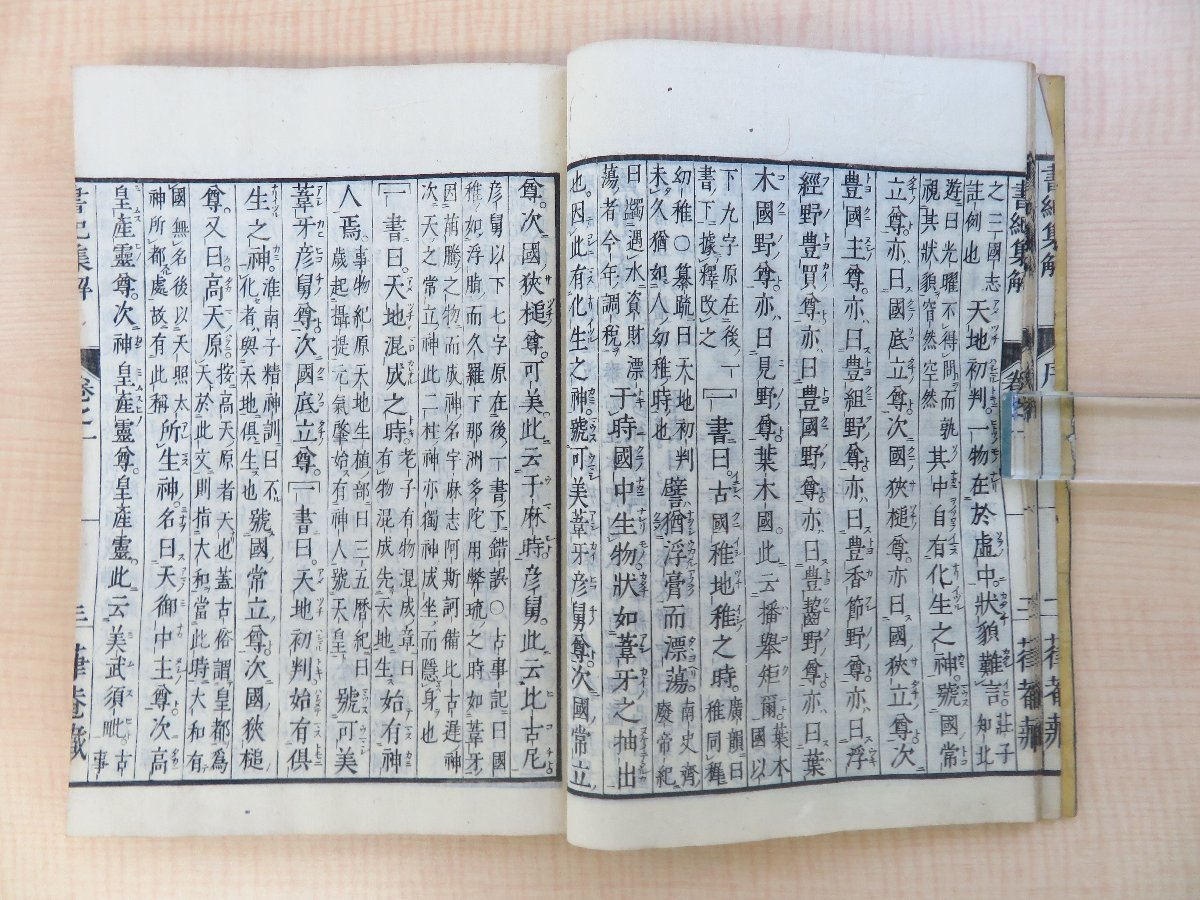 之三國志
註例也天地初判一物在於虛中狀貌難言莊子知北
遊曰光曜不得問而孰
視其狀貌窅然空然其中自有化生之神號國常
立尊亦曰國底立尊次國狹槌尊亦曰國狹立尊次
豊國主尊亦曰豊組野尊亦曰豊香節野尊亦曰浮
經野豊買尊亦曰豊國野尊亦曰豊齧野尊亦曰葉
木國野尊亦曰見野尊葉木國此云播舉矩爾葉木國以
下九字原在後一
書下據釋改之一書曰古國稚地稚之時廣韻曰稚同穉
幼稚○纂疏曰天地初判
未久猶如人幼稚時也譬猶浮膏而漂蕩南史齊廢帝紀
曰濁遇水資財漂
蕩者今年調稅于時國中生物狀如葦牙之抽出
也因此有化生之神號可美葦牙彥舅尊次國常立
尊次國狹槌尊可美此云于麻時彥舅此云比古尼
彥舅以下七字原在後一書下錯誤○古事記曰國
稚如浮脂而久羅下那洲多陀用弊琉之時如葦牙
因萌騰之物而成神名宇麻志阿斯訶備比古遲神
次天之常立神此二柱神亦獨神成坐而隱身也
一書曰天地混成之時老子有物混成章曰
有物混成先天地生始有神
人焉事物紀原天地生植部曰三五曆紀曰
歲起攝提元氣肇始有神人號天皇號可美
葦牙彥舅尊次國底立尊一書曰天地初判始有俱
生之神淮南子精神訓曰不
化者與天地俱生也號國常立尊次國狹槌
尊又曰高天原按高天原者天也蓋古俗謂皇都爲
天於此文則指大和當此時大和有
國無名後以天照太
神所都處故有此稱所生神名曰天御中主尊次高
皇產靈尊次神皇產靈尊皇產靈此云美武須毗古事
書紀集解
卷之一
三
葎菴藏
書紀集解
二
書紀集解
序